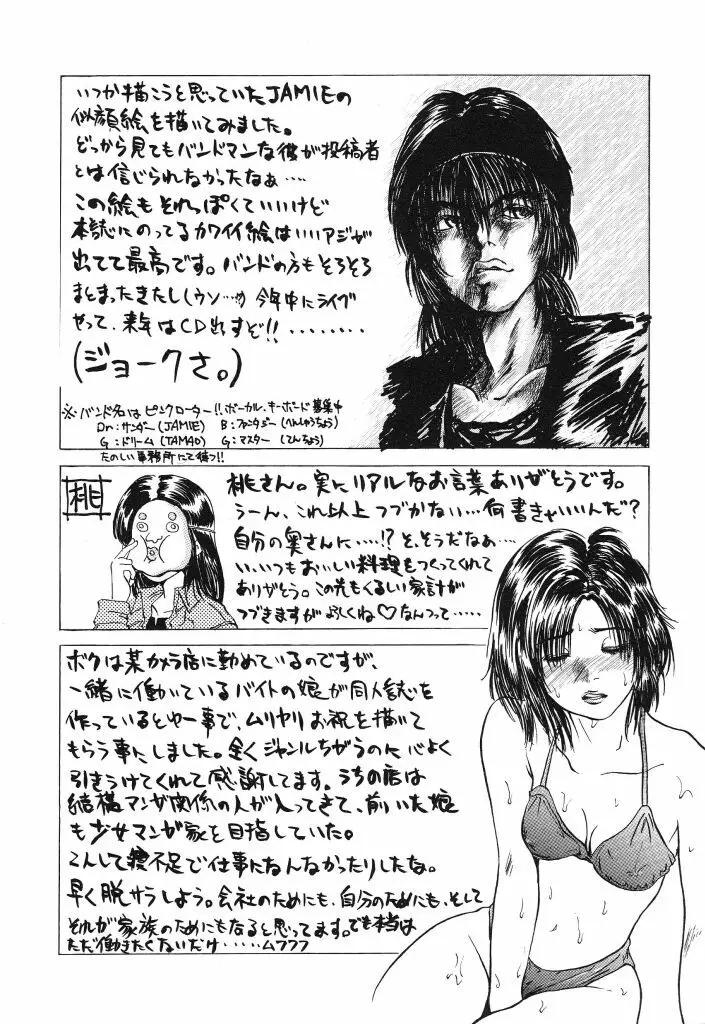 いつか描こうと思っていたJAMIEの
似顔絵を描いてみました。
どっから見てもバンドマンな彼が投稿者
とは信じられなかったなぁ‥‥
この絵もそれっぽくていいけど
本誌にのってるカワイイ絵はいいアジが
出てて最高です。バンドの方もそろそろ
まとまったきたし(ウソ‥‥) 今年中にライブ
やって、来年はCD出すぞ!!‥‥‥‥
(ジョークさ。)
※バンド名はピンクローター!!ボーカル、キーボード募集中
Dr:サンダー(JAMIE) B:ファンタジー(へんしゅうちょう)
G:ドリーム(TAMAO) G:マスター(てんちょう)
たのしい事務所にて待つ!!
桃
桃さん。実にリアルなお言葉ありがとうです。
うーん、これ以上つづかない‥‥何書きゃいいんだ?
自分の奥さんに‥‥!?そ、そうだなぁ‥‥
い、いつもおいしい料理をつくってくれて
ありがとう。この先もくるしい家計が
つづきますがよろしくね♡なんつって‥‥‥
ボクは某カメラ店に勤めているのですが、
一緒に働いているバイトの娘が同人誌を
作っているとゆー事で、ムリヤリお祝を描いて
もらう事にしました。全くジャンルちがうのに心よく
引きうけてくれて感謝してます。うちの店は
結構マンガ関係の人が入ってきて、前いた娘
も少女マンガ家を目指していた。
こんして寝不足で仕事になんなかったりしたな。
早く脱サラしよう。会社のためにも、自分のためにも、そして
それが家族のためにもなると思ってます。でも本当は
ただ働きたくないだけ‥‥‥ムフフフ